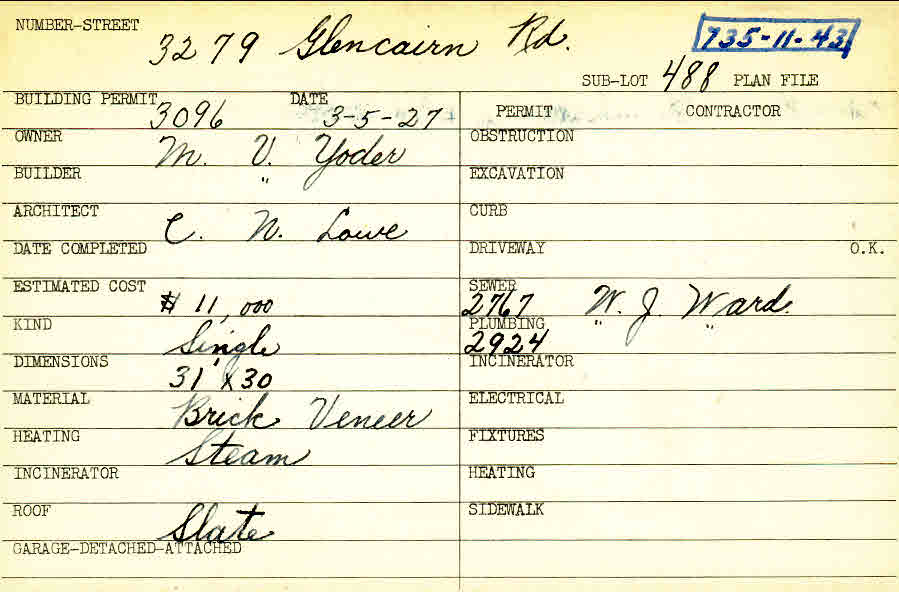 NUMBER-STREET 3279 Glencairn Rd. 735-11-43
SUB-LOT 488 PLAN FILE
BUILDING PERMIT 3096 DATE 3-5-27 PERMIT CONTRACTOR
OWNER M. V. Yoder OBSTRUCTION
BUILDER " EXCAVATION
ARCHITECT C. N. Lowe CURB
DATE COMPLETED DRIVEWAY O.K.
ESTIMATED COST $ 11,000 SEWER 2767 W. J. Ward
KIND Single PLUMBING 2924 " "
DIMENSIONS 31' X 30 INCINERATOR
MATERIAL Brick Veneer ELECTRICAL
HEATING Steam FIXTURES
INCINERATOR HEATING
ROOF Slate SIDEWALK
GARAGE-DETACHED-ATTACHED